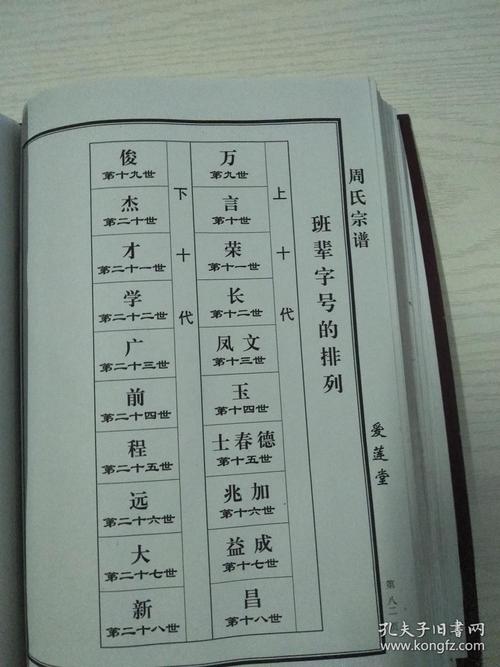 周氏宗谱
爱莲堂
第八二
班辈字号的排列
上十代
万
第九世
言
第十世
荣
第十一世
长
第十二世
凤文
第十三世
玉
第十四世
士春德
第十五世
兆加
第十六世
益成
第十七世
昌
第十八世
下十代
俊
第十九世
杰
第二十世
才
第二十一世
学
第二十二世
广
第二十三世
前
第二十四世
程
第二十五世
远
第二十六世
大
第二十七世
新
第二十八世
孔夫子旧书网
www.kongfz.com